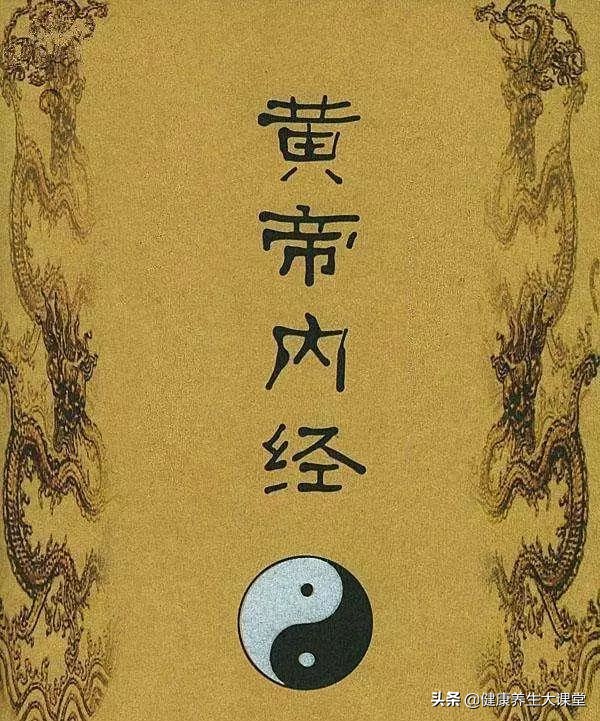 黄帝内经
头条 @健康养生大课堂